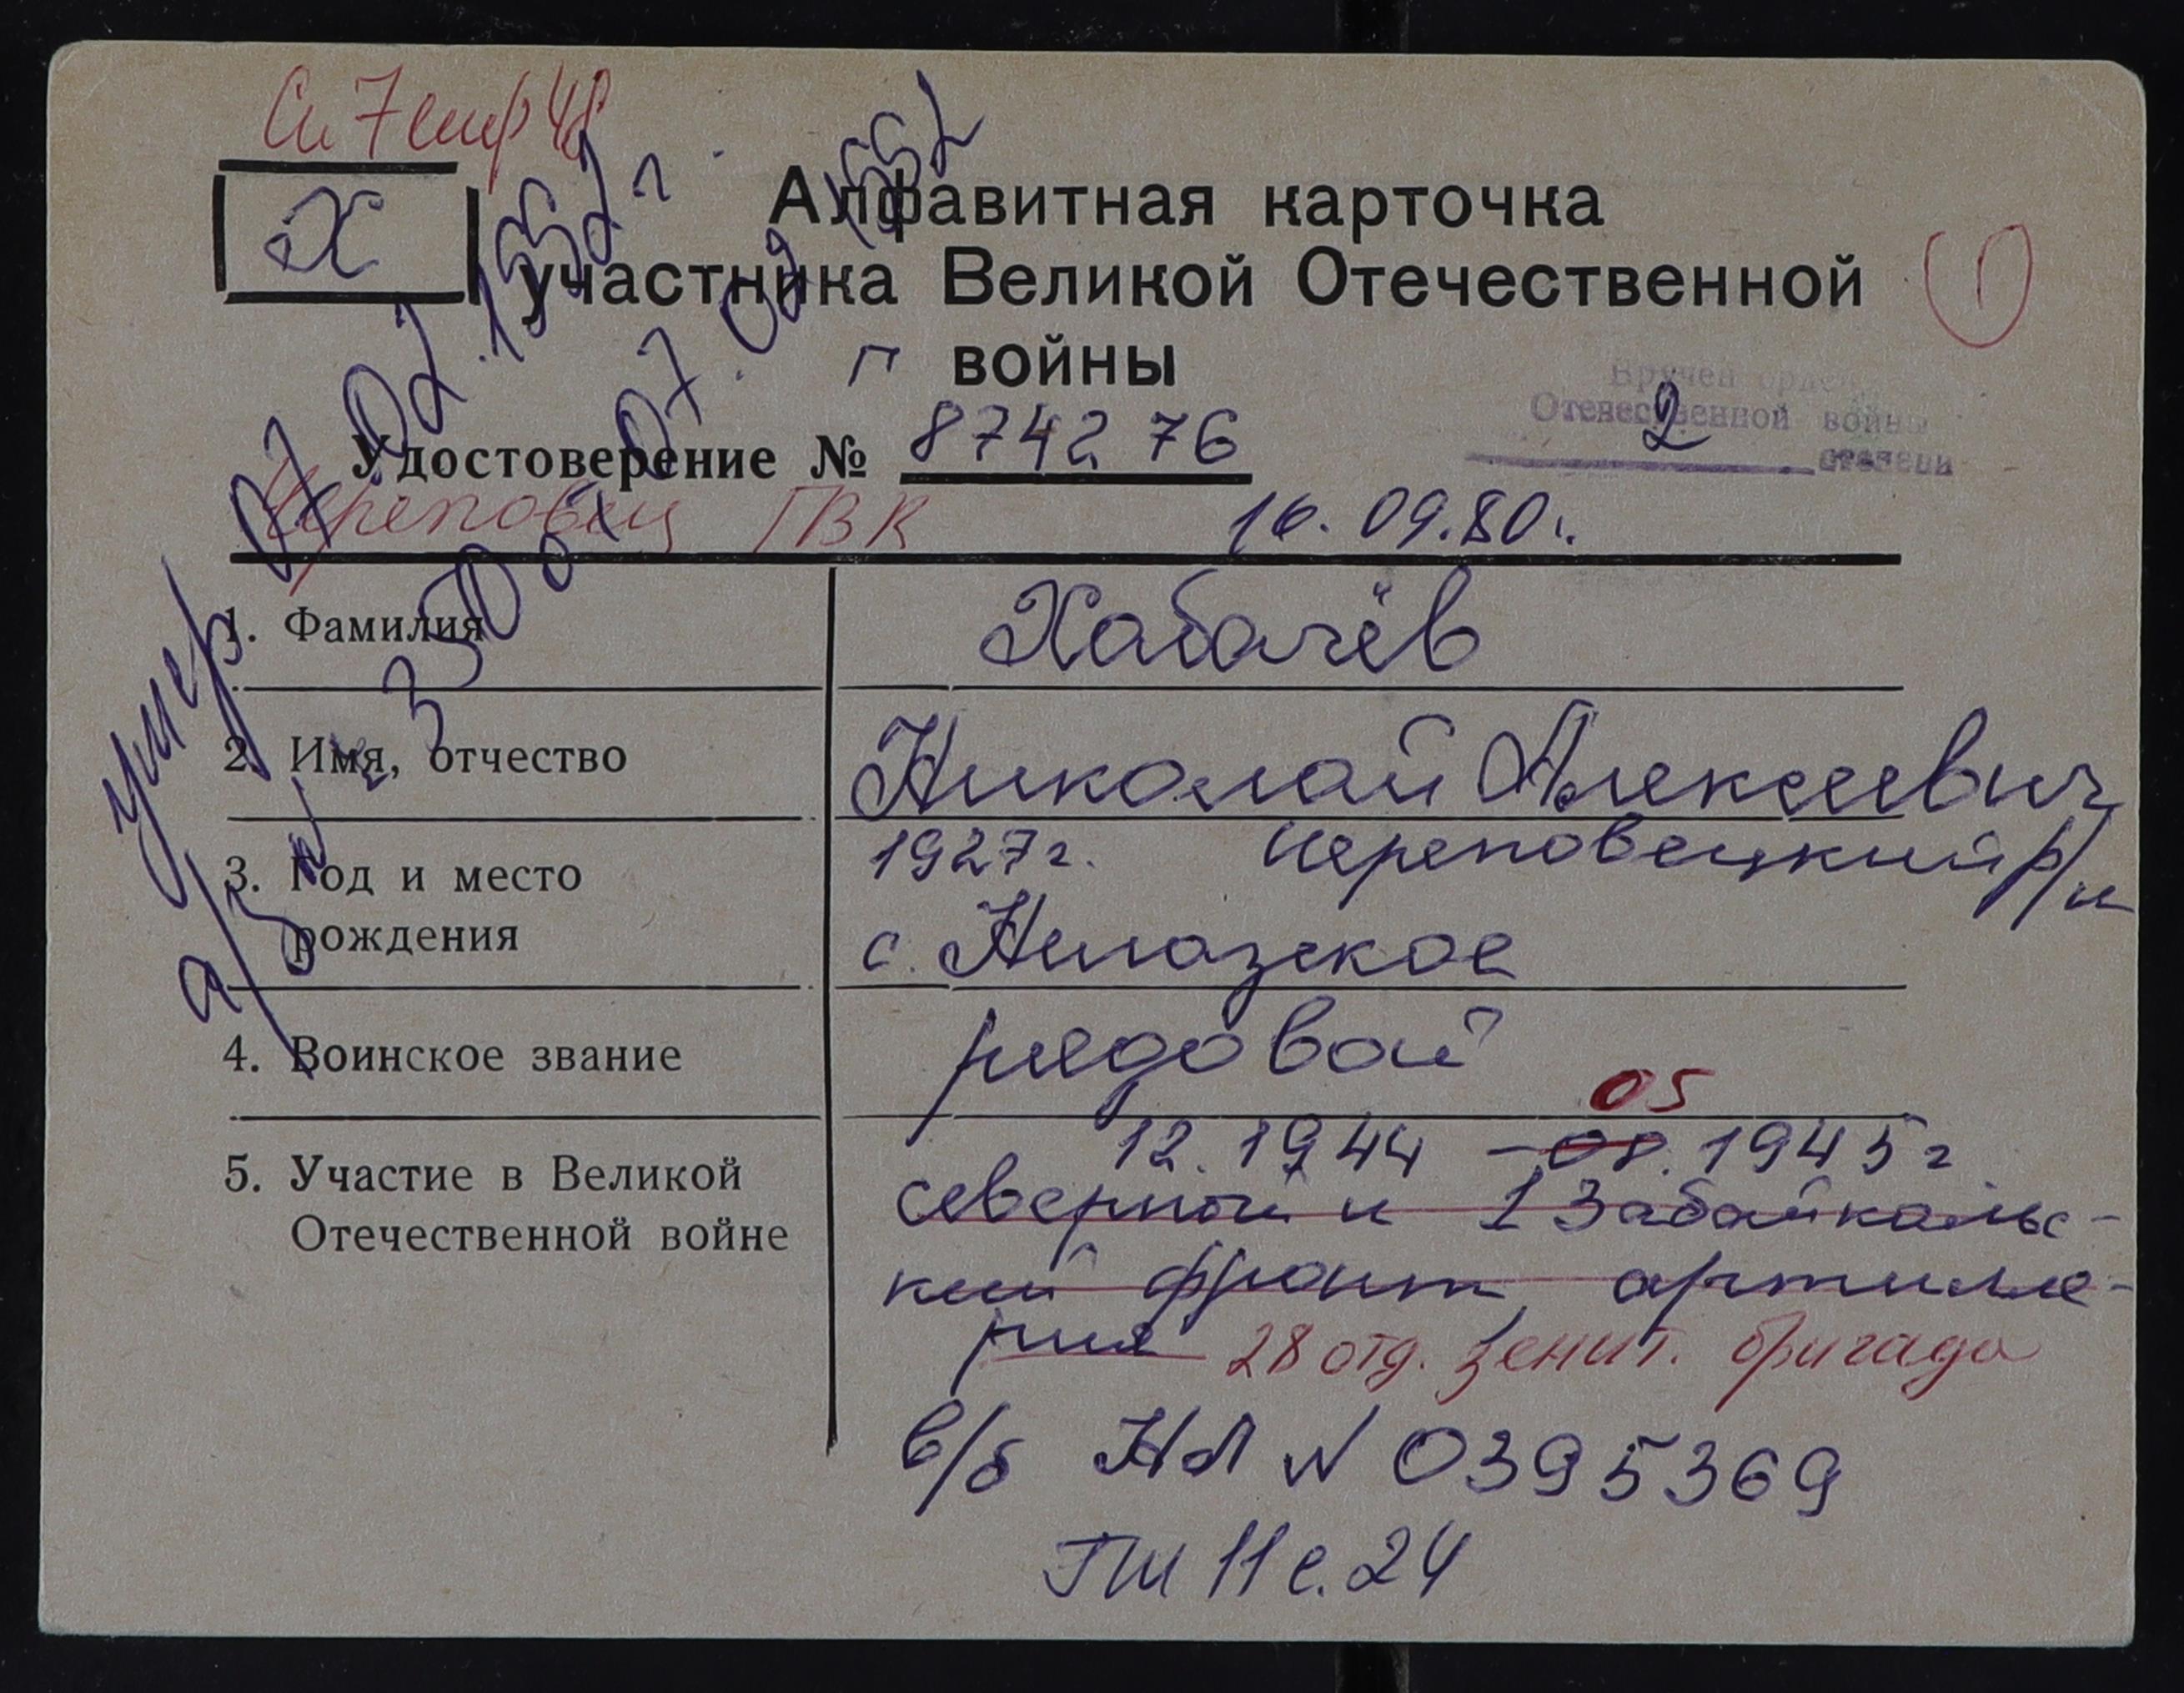 Сп 7 стр 48
Х
Алфавитная карточка
участника Великой Отечественной
войны
1
Вручен орден
Отечественной войны
2 степени
Удостоверение № 874276
Череповец ГВК 16.09.80г.
умер 07.02.1992г.
а/з № 350 от 07.02.1992 г
1. Фамилия
Хабачёв
2. Имя, отчество
Николай Алексеевич
3. Год и место
рождения
1927г. Череповецкий р/н
с. Нелазское
4. Воинское звание
рядовой
5. Участие в Великой
Отечественной войне
05
12.1944 - 08.1945г
северной и 1 Забайкальс-
кий фронт, артилле-
рия 28 отд. зенит. бригада
в/б НЛ № 0395369
ГШ 11 с. 24